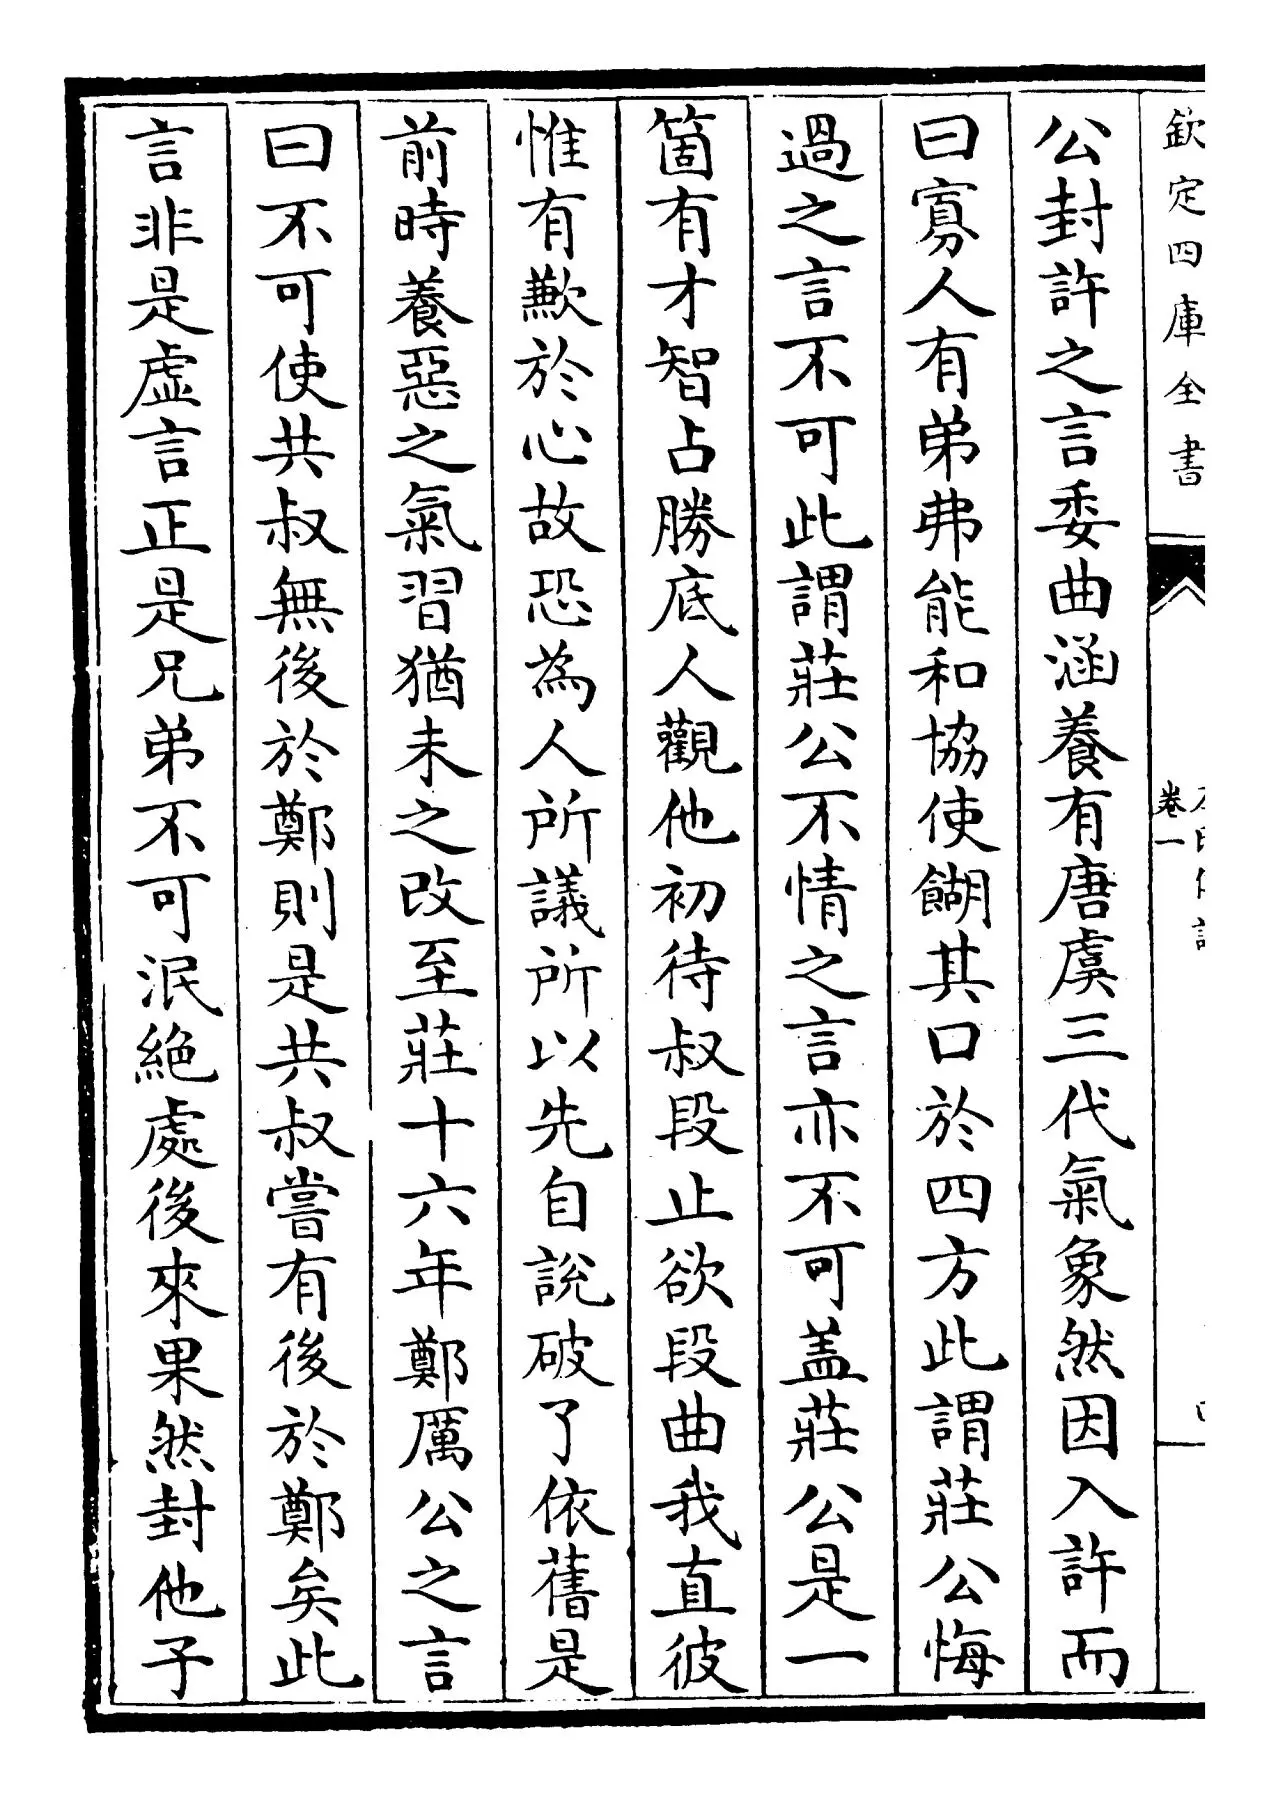 欽定四庫全書
卷一
公封許之言委曲涵養有唐虞三代氣象然因入許而
曰寡人有弟弗能和協使餬其口於四方此謂莊公悔
過之言不可此謂莊公不情之言亦不可盖莊公是一
箇有才智占勝底人觀他初待叔段止欲段曲我直彼
惟有歉於心故恐為人所議所以先自説破了依舊是
前時養惡之氣習猶未之改至莊十六年鄭厲公之言
曰不可使共叔無後於鄭則是共叔嘗有後於鄭矣此
言非是虚言正是兄弟不可泯絶處後來果然封他子